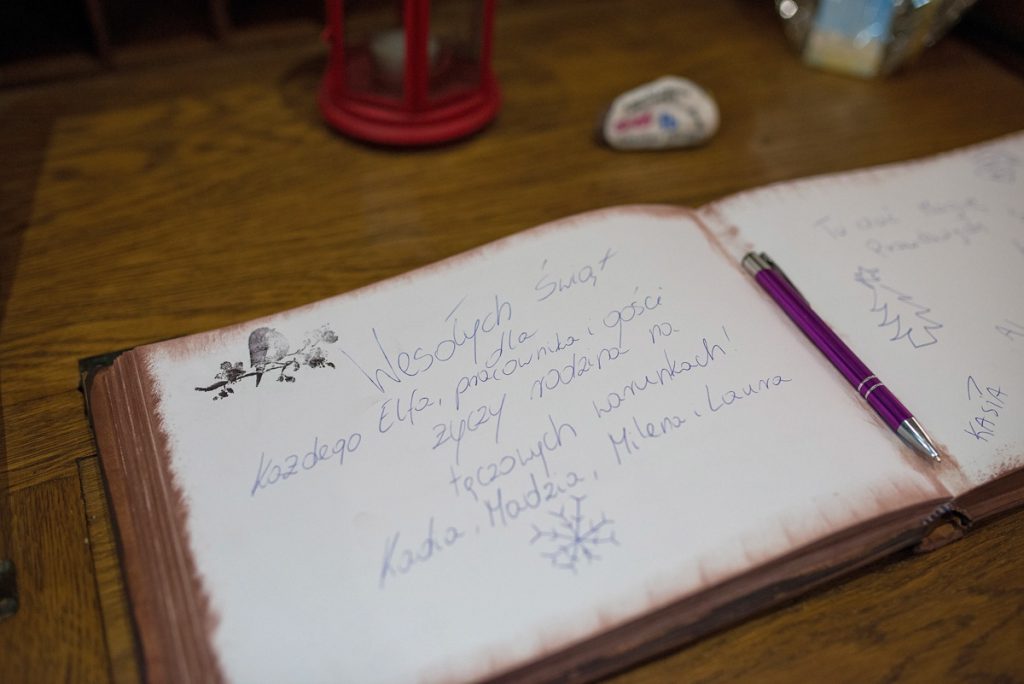 Wesołych Świąt
dla
Każdego Elfa, pracownika i gości
życzy rodzina na
tęczowych warunkach!
Kacha, Madzia, Milena i Laura
KASIA